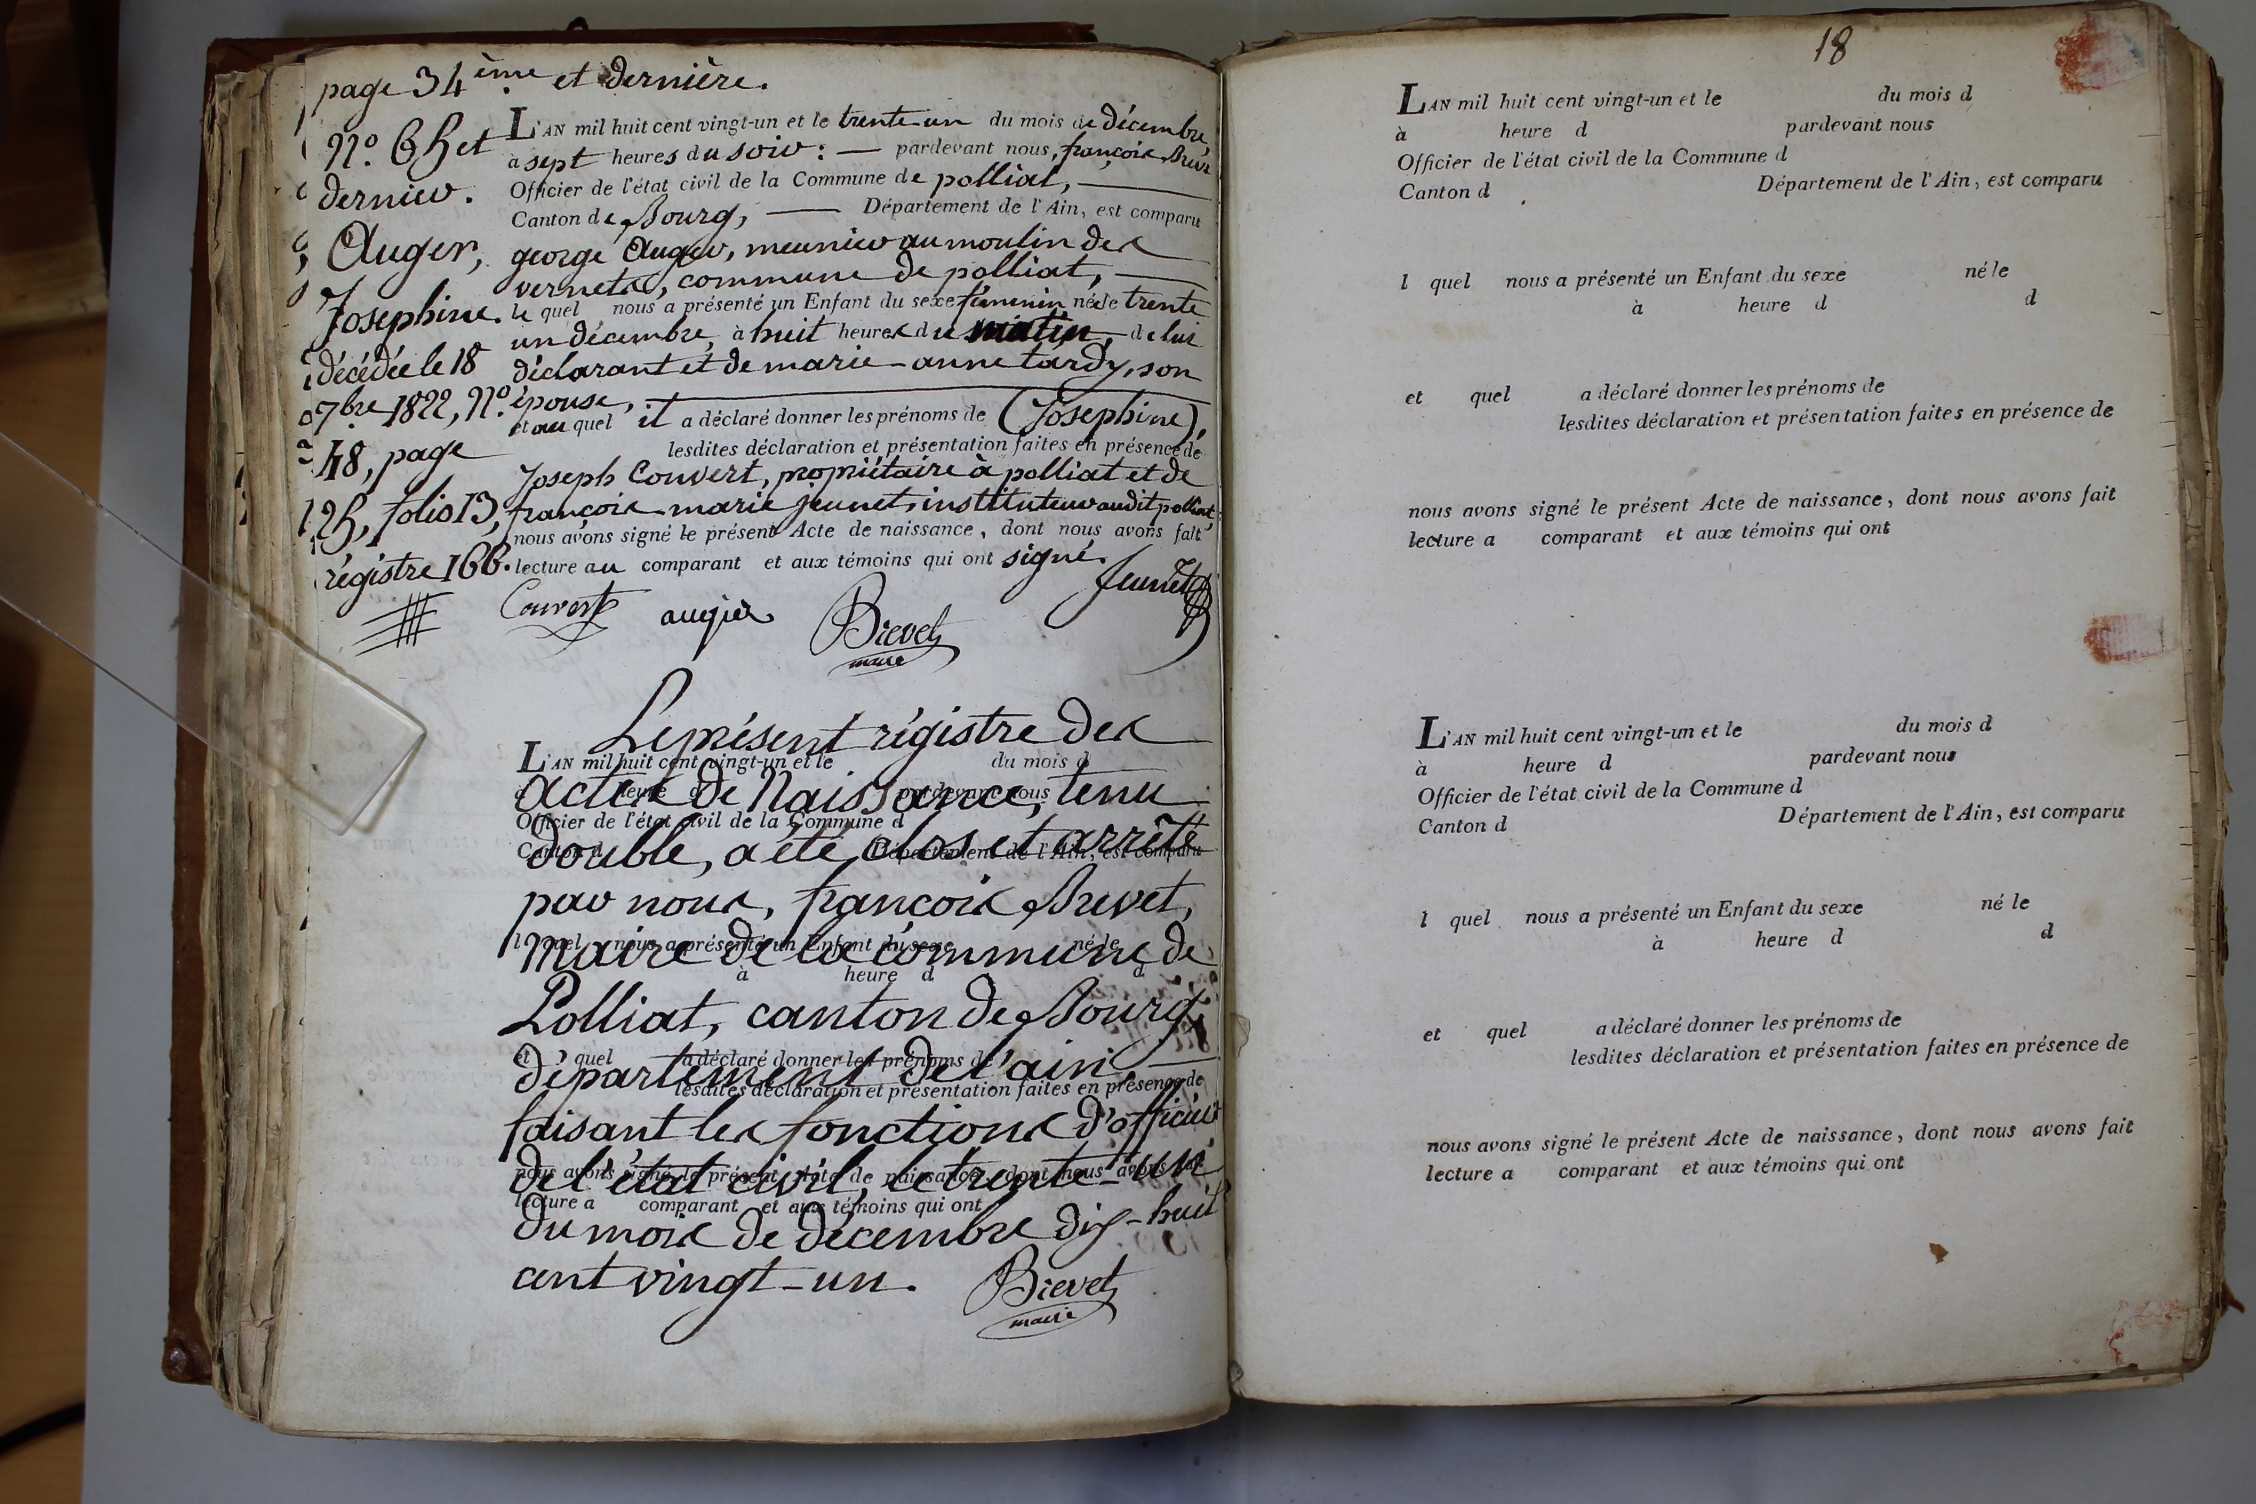 page 34ème et dernière.
N.º 65 et
dernier.
Auger,
Josephine.
décédée le 18
7bre 1822, N.º
48, page
25, folio 13,
régistre 166.
L'AN mil huit cent vingt-un et le trente-un du mois de décembre,
à sept heures du soir : — pardevant nous, françois Brevet
Officier de l'état civil de la Commune de polliat, —
Canton de Bourg, — Département de l'Ain, est comparu
george Auger, meunier au moulin des
vernets, commune de polliat, —
le quel nous a présenté un Enfant du sexe féminin née le trente
un décembre, à huit heures du matin, de lui
déclarant et de marie-anne tardy, son
épouse, —
et au quel il a déclaré donner les prénoms de (Josephine),
lesdites déclaration et présentation faites en présence de
Joseph Convert, propriétaire à polliat et de
françois-marie jeunet, instituteur audit polliat,
nous avons signé le présent Acte de naissance, dont nous avons fait
lecture au comparant et aux témoins qui ont signé.
Convert augier Brevet Jeunet
maire
Le présent régistre des
L'AN mil huit cent vingt-un et le du mois d
actes de Naissance, tenu
à heure d pardevant nous
Officier de l'état civil de la Commune d
double, a été clos et arrêté
Canton d Département de l'Ain, est comparu
par nous, françois Brevet,
l quel nous a présenté un Enfant du sexe né le
maire de la commune de
à heure d d
Polliat, canton de Bourg,
et quel a déclaré donner les prénoms de
département de l'ain, —
lesdites déclaration et présentation faites en présence de
faisant les fonctions d'officier
nous avons signé le présent Acte de naissance, dont nous avons fait
de l'état civil, le trente-un
lecture a comparant et aux témoins qui ont
du mois de décembre dix-huit
cent vingt-un. Brevet
maire
18
L'AN mil huit cent vingt-un et le du mois d
à heure d pardevant nous
Officier de l'état civil de la Commune d
Canton d Département de l'Ain, est comparu
l quel nous a présenté un Enfant du sexe né le
à heure d d
et quel a déclaré donner les prénoms de
lesdites déclaration et présentation faites en présence de
nous avons signé le présent Acte de naissance, dont nous avons fait
lecture a comparant et aux témoins qui ont
L'AN mil huit cent vingt-un et le du mois d
à heure d pardevant nous
Officier de l'état civil de la Commune d
Canton d Département de l'Ain, est comparu
l quel nous a présenté un Enfant du sexe né le
à heure d d
et quel a déclaré donner les prénoms de
lesdites déclaration et présentation faites en présence de
nous avons signé le présent Acte de naissance, dont nous avons fait
lecture a comparant et aux témoins qui ont